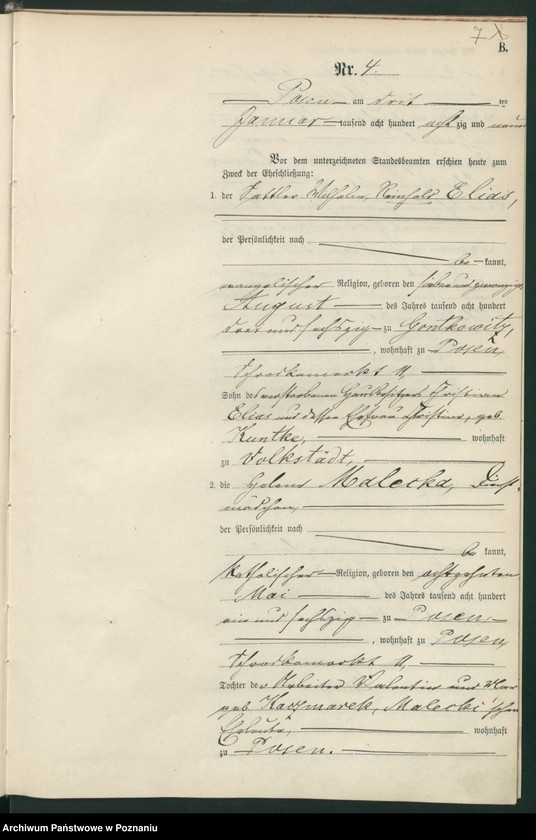 7
B.
Nr. 4.
Posen am drit ten
Januar tausend acht hundert acht zig und neun
Vor dem unterzeichneten Standesbeamten erschien heute zum
Zweck der Eheschließung:
1. der Sattler Wilhelm Reinhold Elias,
der Persönlichkeit nach
be kannt,
evangelischer Religion, geboren den sieben und zwanzigsten
August des Jahres tausend acht hundert
drei und sechszig zu Gontkowitz,
, wohnhaft zu Posen,
Schrodkamarkt 11,
Sohn des verstorbenen Hausbesitzers Christian
Elias und dessen Ehefrau Christine, geb.
Kuntke, wohnhaft
zu Volkstädt,
2. die Helene Malecka, Dienst-
mädchen,
der Persönlichkeit nach
be kannt,
katholischer Religion, geboren den achtzehnten
Mai des Jahres tausend acht hundert
ein und sechszig zu Posen,
, wohnhaft zu Posen,
Schrodkamarkt 11,
Tochter der Arbeiter Valentin und
geb. Kaczmarek, Malecki'schen
Eheleute, wohnhaft
zu Posen.
Archiwum Państwowe w Poznaniu